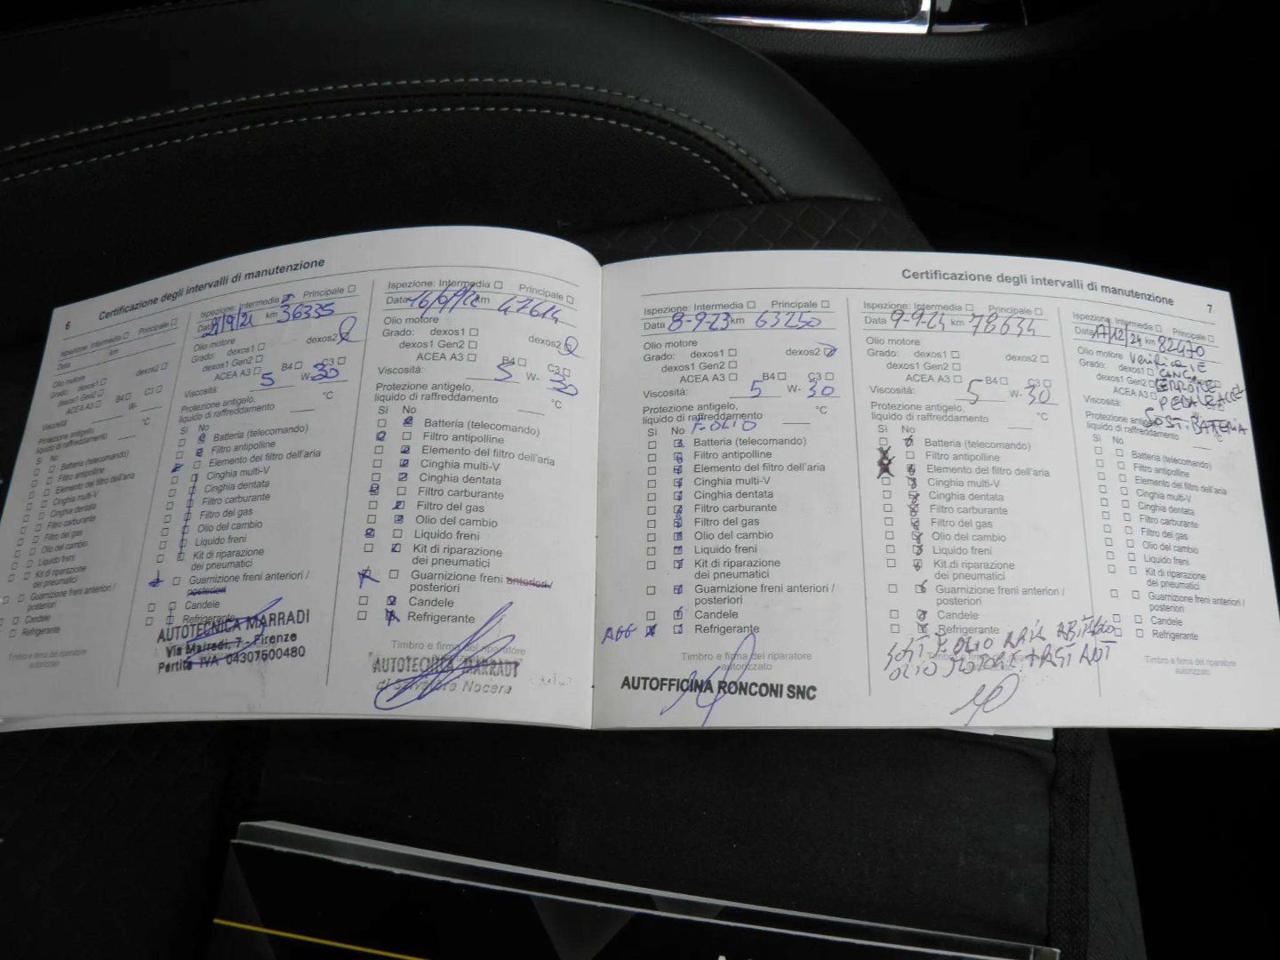 6
Certificazione degli intervalli di manutenzione
Ispezione: Intermedia Principale
Data km
Olio motore
Grado: dexos1 dexos2
dexos1 Gen2
ACEA A3 B4 C3
Viscosità: W-
Protezione antigelo,
liquido di raffreddamento °C
Sì No
Batteria (telecomando)
Filtro antipolline
Elemento del filtro dell'aria
Cinghia multi-V
Cinghia dentata
Filtro carburante
Filtro del gas
Olio del cambio
Liquido freni
Kit di riparazione
dei pneumatici
Guarnizione freni anteriori /
posteriori
Candele
Refrigerante
Timbro e firma del riparatore
autorizzato
Ispezione: Intermedia Principale
Data km 36335
Olio motore
Grado: dexos1 dexos2
dexos1 Gen2
ACEA A3 B4 C3
Viscosità: 5 W- 30
Protezione antigelo,
liquido di raffreddamento °C
Sì No
Batteria (telecomando)
Filtro antipolline
Elemento del filtro dell'aria
Cinghia multi-V
Cinghia dentata
Filtro carburante
Filtro del gas
Olio del cambio
Liquido freni
Kit di riparazione
dei pneumatici
Guarnizione freni anteriori /
posteriori
Candele
Refrigerante
AUTOTECNICA MARRADI
Via Marradi, 7 - Firenze
Partita IVA 04307500480
Ispezione: Intermedia Principale
Data km 47614
Olio motore
Grado: dexos1 dexos2
dexos1 Gen2
ACEA A3 B4 C3
Viscosità: 5 W- 30
Protezione antigelo,
liquido di raffreddamento °C
Sì No
Batteria (telecomando)
Filtro antipolline
Elemento del filtro dell'aria
Cinghia multi-V
Cinghia dentata
Filtro carburante
Filtro del gas
Olio del cambio
Liquido freni
Kit di riparazione
dei pneumatici
Guarnizione freni anteriori /
posteriori
Candele
Refrigerante
Timbro e firma del riparatore
AUTOTECNICA MARRADI
di Salvatore Nocera
Certificazione degli intervalli di manutenzione
7
Ispezione: Intermedia Principale
Data 8-9-23 km 63250
Olio motore
Grado: dexos1 dexos2
dexos1 Gen2
ACEA A3 B4 C3
Viscosità: 5 W- 30
Protezione antigelo,
liquido di raffreddamento °C
Sì No F. OLIO
Batteria (telecomando)
Filtro antipolline
Elemento del filtro dell'aria
Cinghia multi-V
Cinghia dentata
Filtro carburante
Filtro del gas
Olio del cambio
Liquido freni
Kit di riparazione
dei pneumatici
Guarnizione freni anteriori /
posteriori
Candele
AGG Refrigerante
Timbro e firma del riparatore
autorizzato
AUTOFFICINA RONCONI SNC
Ispezione: Intermedia Principale
Data 9-9-24 km 78634
Olio motore
Grado: dexos1 dexos2
dexos1 Gen2
ACEA A3 B4 C3
Viscosità: 5 W- 30
Protezione antigelo,
liquido di raffreddamento °C
Sì No
Batteria (telecomando)
Filtro antipolline
Elemento del filtro dell'aria
Cinghia multi-V
Cinghia dentata
Filtro carburante
Filtro del gas
Olio del cambio
Liquido freni
Kit di riparazione
dei pneumatici
Guarnizione freni anteriori /
posteriori
Candele
Refrigerante
SOST. F. OLIO
OLIO MOTORE
Ispezione: Intermedia Principale
Data km 82470
Olio motore
Grado: dexos1
dexos1 Gen2
ACEA A3
Viscosità:
PEDALE ACC.
SOST. BATTERIA
Protezione antigelo,
liquido di raffreddamento
Sì No
Batteria (telecomando)
Filtro antipolline
Elemento del filtro dell'aria
Cinghia multi-V
Cinghia dentata
Filtro carburante
Filtro del gas
Olio del cambio
Liquido freni
Kit di riparazione
dei pneumatici
Guarnizione freni anteriori /
posteriori
Candele
Refrigerante
Timbro e firma del riparatore
autorizzato